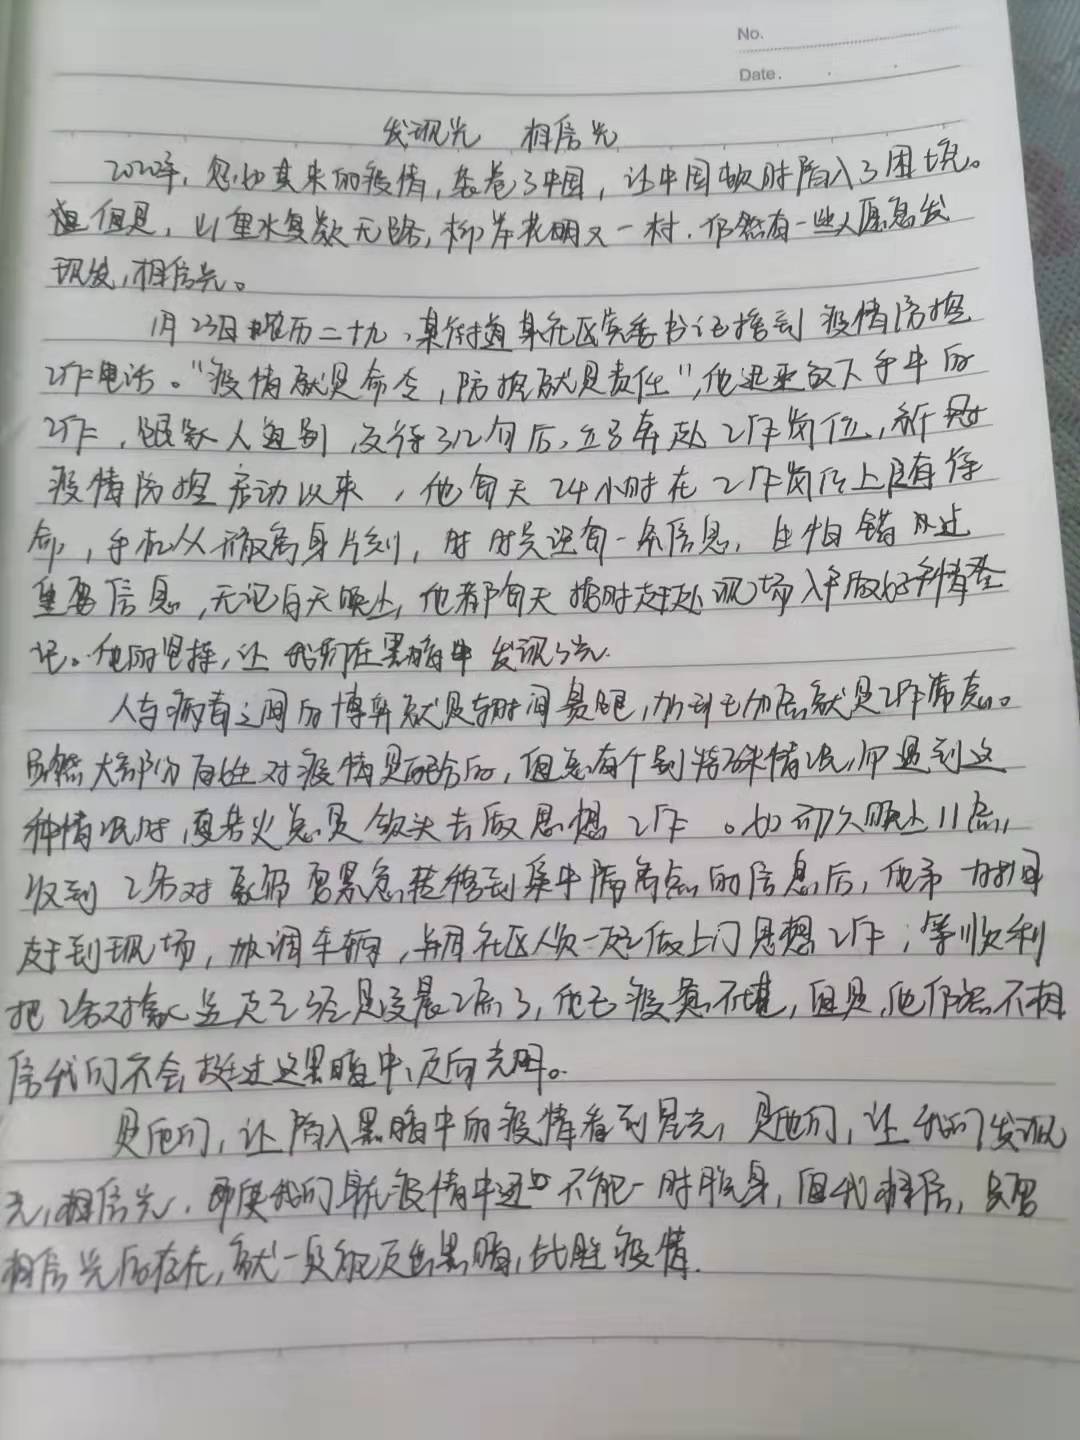 No.
Date.
发现光 相信光
2020年,忽如其来的疫情,袭卷了中国,让中国顿时陷入了困境。
但是,山重水复疑无路,柳岸花明又一村.仍然有一些人愿意发
现发,相信光。
1月23日 农历二十九,某街道某社区党委书记接到 疫情防控
工作电话。"疫情就是命令,防控就是责任",他迅速放下手中的
工作,跟家人道别,交待三几句后,立马奔赴工作岗位,新冠
疫情防控启动以来,他每天24小时在工作岗位上随有待
命,手机从不敢离身片刻,时时关注每一条信息,生怕错过
重要信息,无论白天晚上,他都每天按时赶赴现场 做好 情登
记。他的坚持,让我们在黑暗中发现了光.
人与病毒之间的博弈就是与时间赛跑,加到七加点就是工作常态。
虽然大部分百姓对疫情是配合的,但总有个别特殊情况,而遇到这
种情况时,夏若火总是领头去做思想工作。如初九晚上11点,
收到2名对象仍需紧急转移到集中隔离点的信息后,他第一时间
赶到现场,加调车辆,并同社区人员一起做上门思想工作;等顺利
把2名对象送走已经是凌晨2点了,他已疲惫不堪,但是,他仍然不相
信我们不会挺过这黑暗中,迈向光明。
是他们,让陷入黑暗中的疫情看到星光,是他们,让我们发现
光,相信光,即使我们身在疫情中 不能一时脱身,但我相信,只要
相信光的存在,就一定能走出黑暗,战胜疫情.